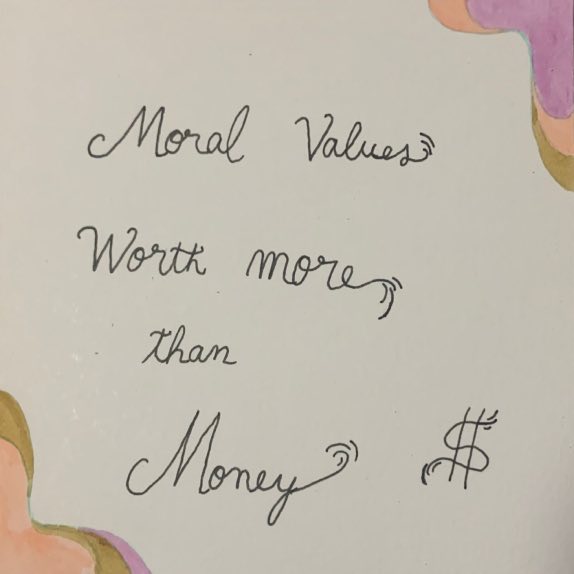 Moral Values
Worth more
than
Money $